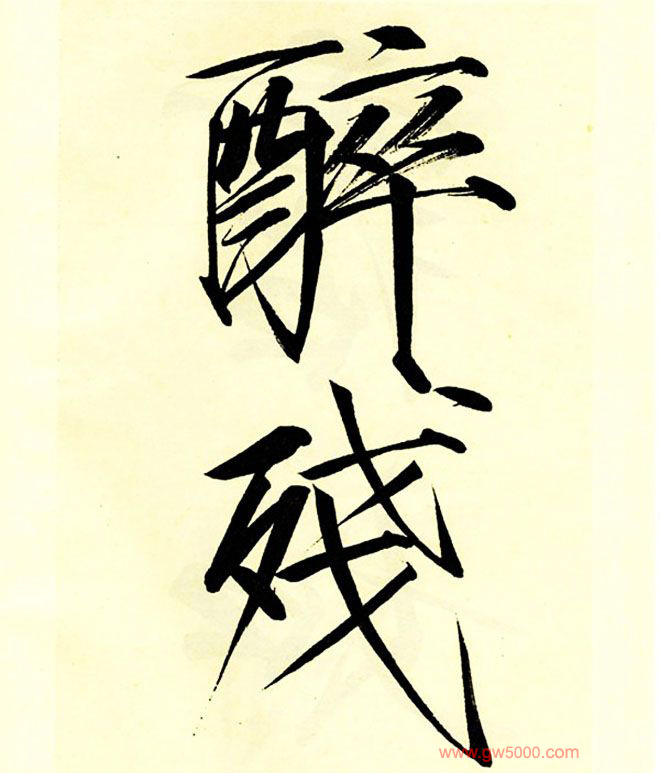 醉
殘
www.gw5000.com